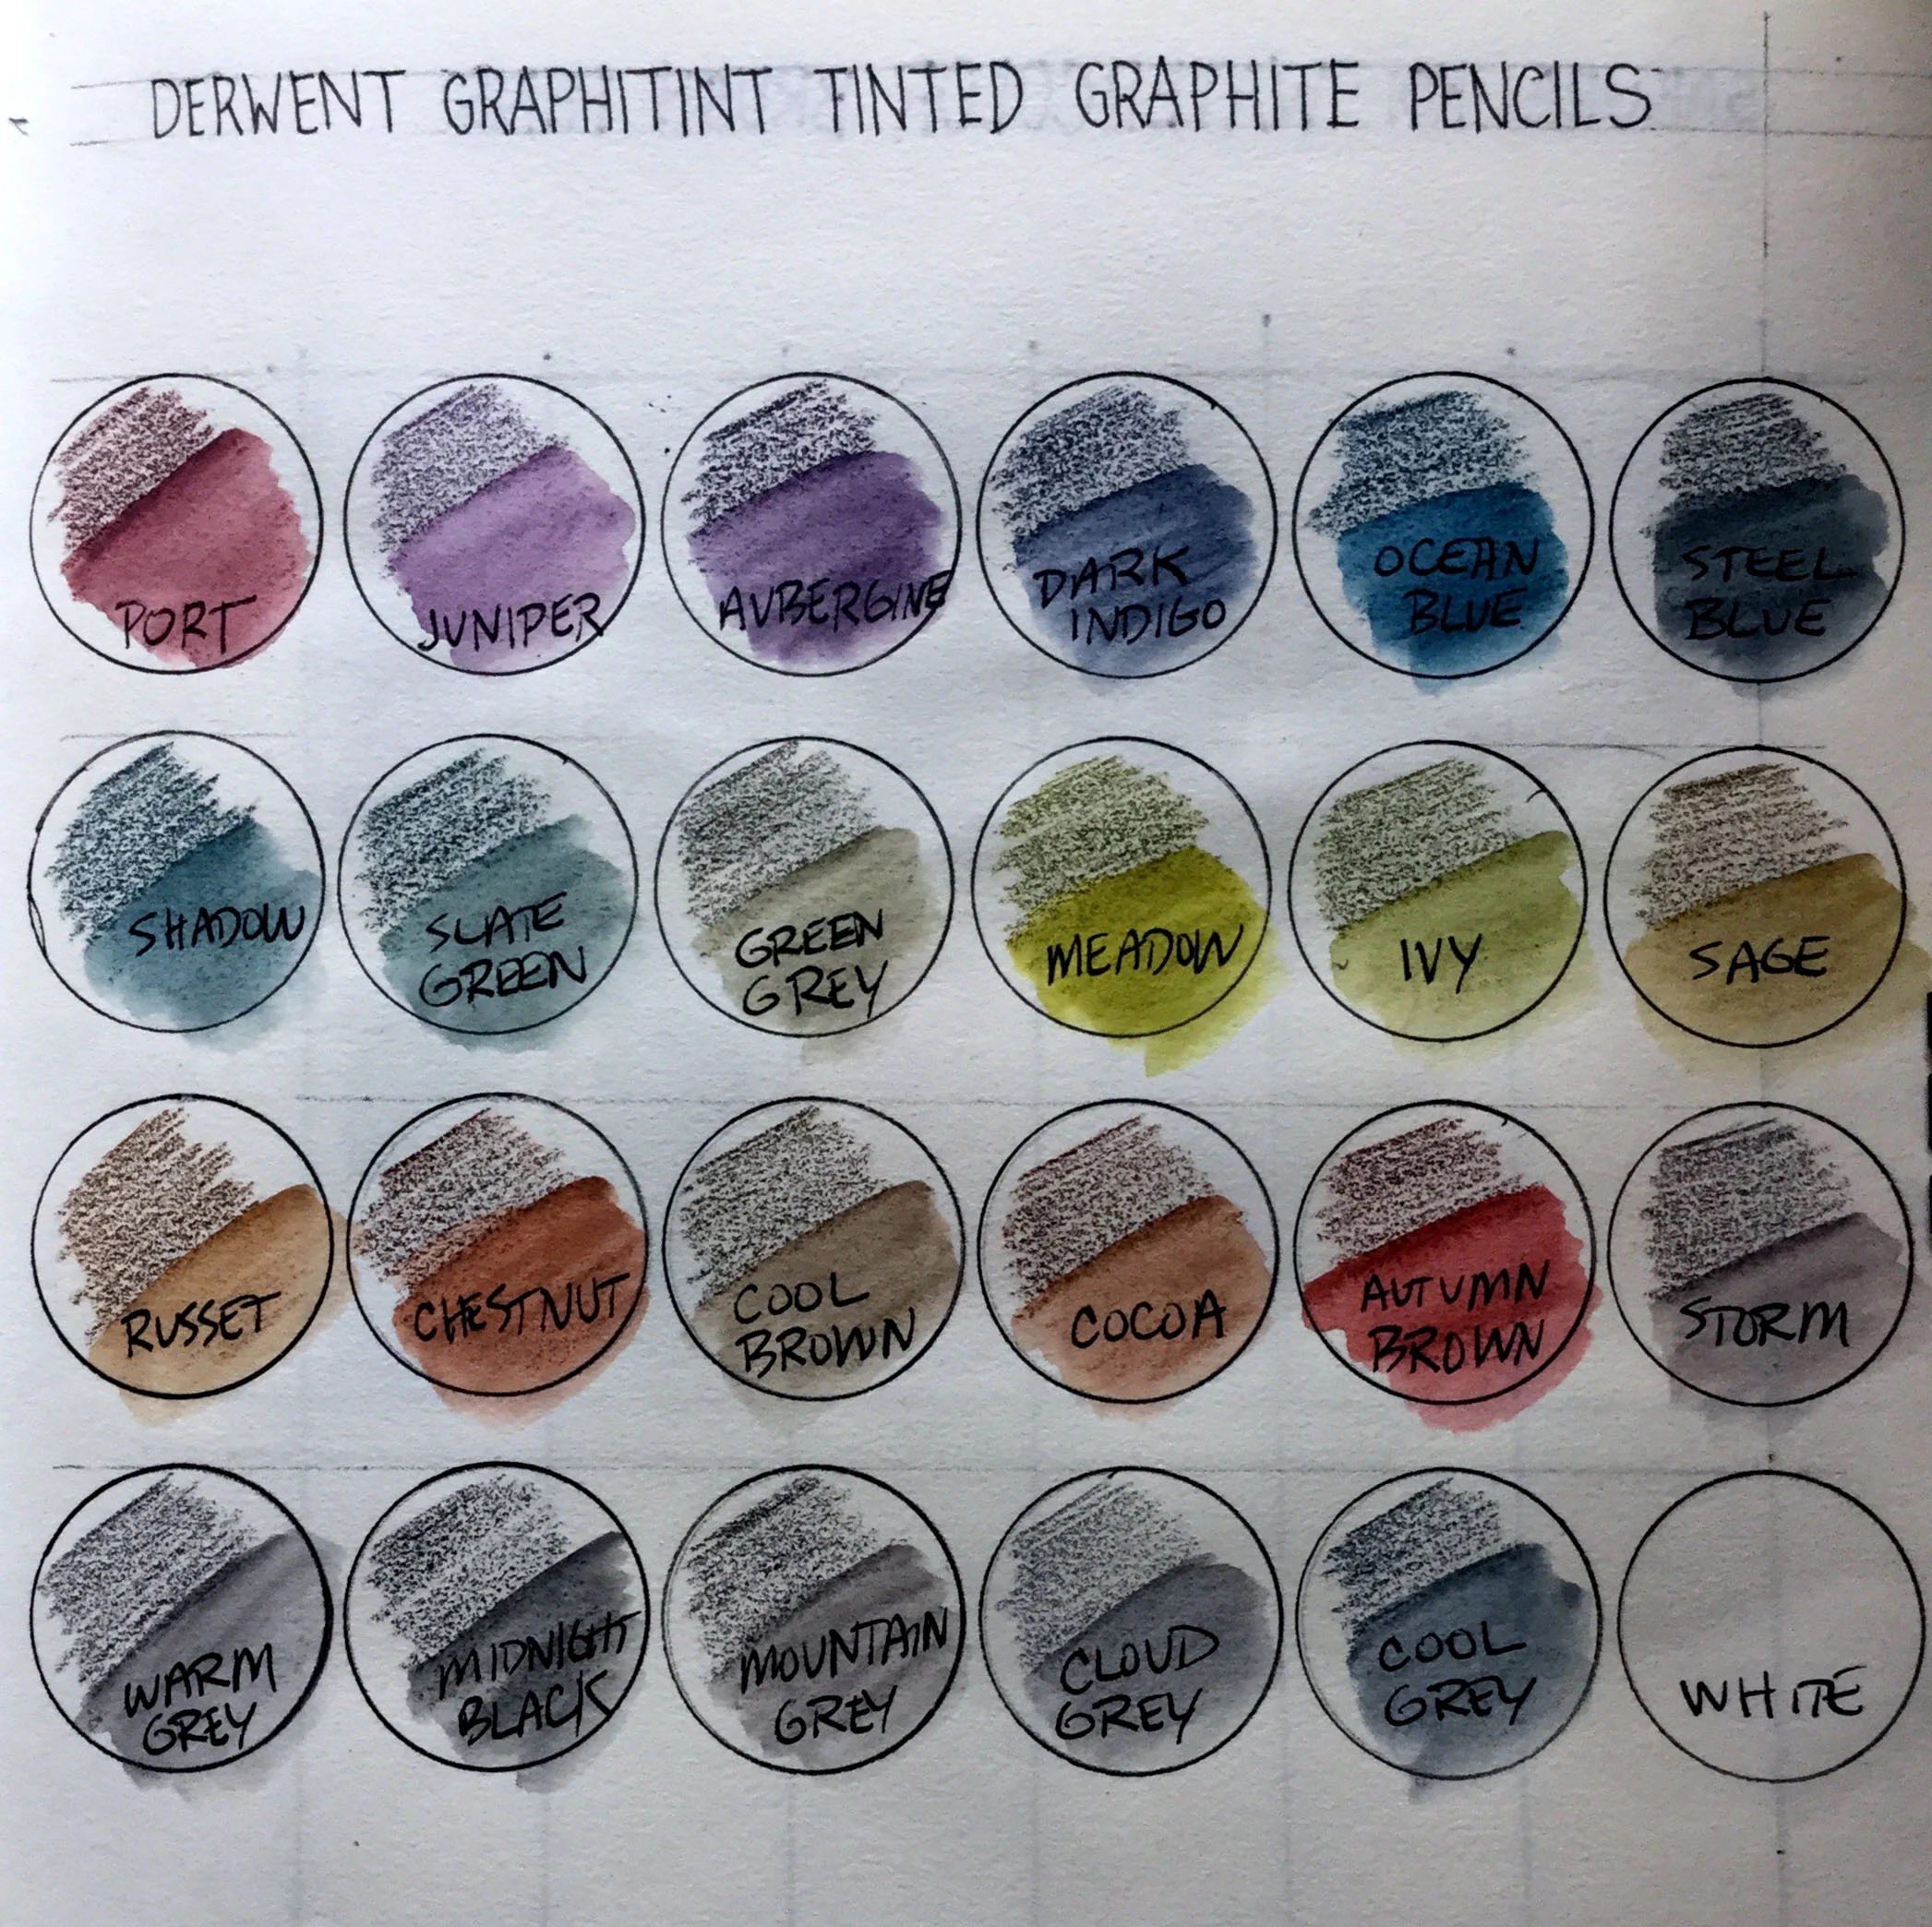 DERWENT GRAPHITINT TINTED GRAPHITE PENCILS
PORT
JUNIPER
AUBERGINE
DARK
INDIGO
OCEAN
BLUE
STEEL
BLUE
SHADOW
SLATE
GREEN
GREEN
GREY
MEADOW
IVY
SAGE
RUSSET
CHESTNUT
COOL
BROWN
COCOA
AUTUMN
BROWN
STORM
WARM
GREY
MIDNIGHT
BLACK
MOUNTAIN
GREY
CLOUD
GREY
COOL
GREY
WHITE